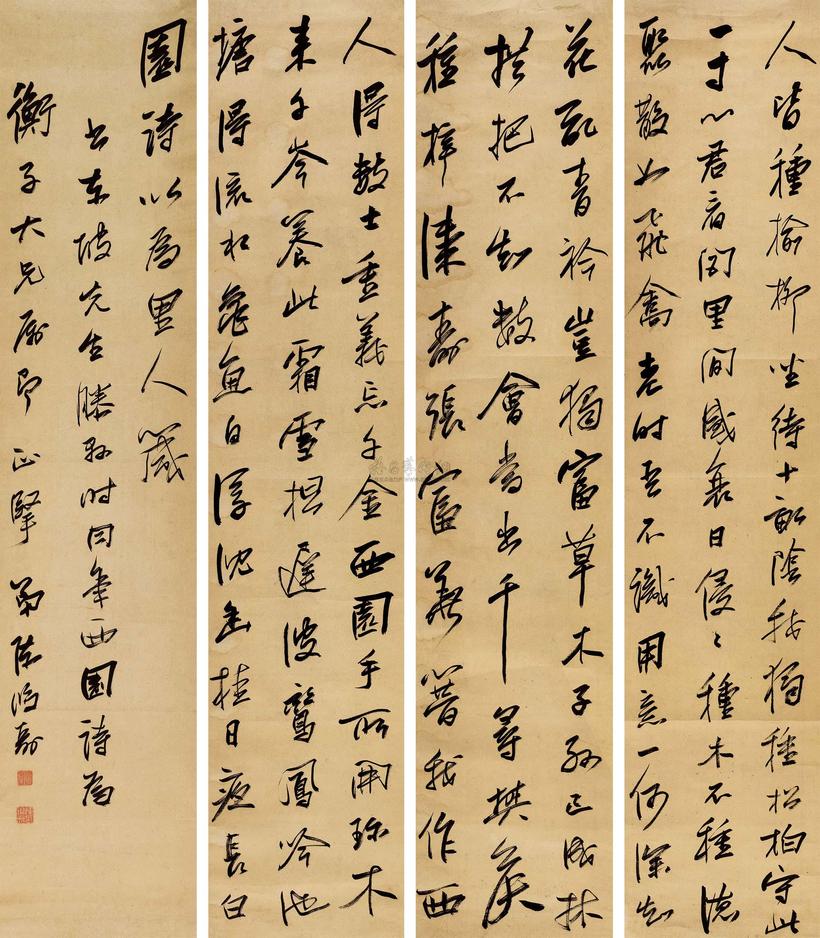 人皆種榆柳坐待十畝陰我獨種松柏守此
一寸心君看閭里間盛衰日侵〻種木不種德
聚散如飛禽老時吾不識用意一何深知
花亂青衿豈獨富草木子孫已成林
拱把不知數會當出千尋樊侯
種梓漆壽張富華簪我作西
人得數士重義忘千金西園手所開珍木
來千岑養此霜雪根遲彼鸞鳳吟池
塘得流水龜魚自浮沈幽桂日夜長白
園詩以為里人箴
書東坡先生滕縣時同年西園詩為
衡子大兄屬即正 弟陳鴻壽